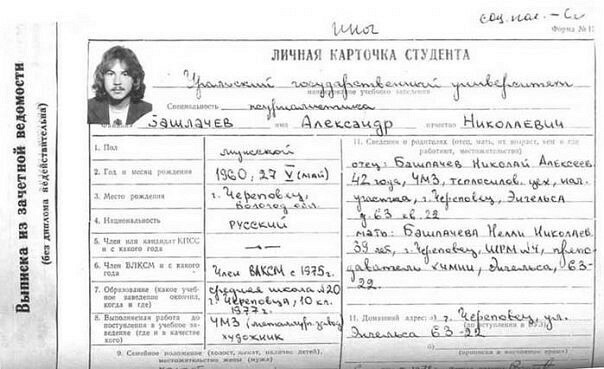 соц. пол. - сл
иног
Форма №
ЛИЧНАЯ КАРТОЧКА СТУДЕНТА
Уральский государственный университет
наименование учебного заведения
Специальность журналистика
Фамилия Башлачев имя Александр отчество Николаевич
Выписка из зачетной ведомости
(без диплома недействительна)
1. Пол
мужской
2. Год и месяц рождения
1960, 27 V (май)
3. Место рождения
г. Череповец,
Вологод. обл.
4. Национальность
русский
5. Член или кандидат КПСС
и с какого года
—
6. Член ВЛКСМ и с какого
года
Член ВЛКСМ с 1975 г.
7. Образование (какое учеб-
ное заведение окончил,
когда и где)
средняя школа №20
г. Череповца, 10 кл.
1977 г.
8. Выполняемая работа до
поступления в учебное за-
ведение (где и в качестве
кого)
ЧМЗ (металлург. завод)
художник
9. Семейное положение (холост, женат, наличие детей),
местожительство жены (мужа)
11. Сведения о родителях (отец, мать, их возраст, чем и где
работают, местожительство)
отец: Башлачев Николай Алексеев.
42 года, ЧМЗ, теплосилов. цех, нач.
участка, г. Череповец, Энгельса
д. 63 кв. 22
мать: Башлачева Нелли Николаев.
39 лет, г. Череповец, ШРМ №4, препо-
даватель химии, Энгельса, 63-
22.
11. Домашний адрес: а) г. Череповец, ул.
(до поступления в ВУЗ)
Энгельса 63-22
б)
(прописка в настоящее время)